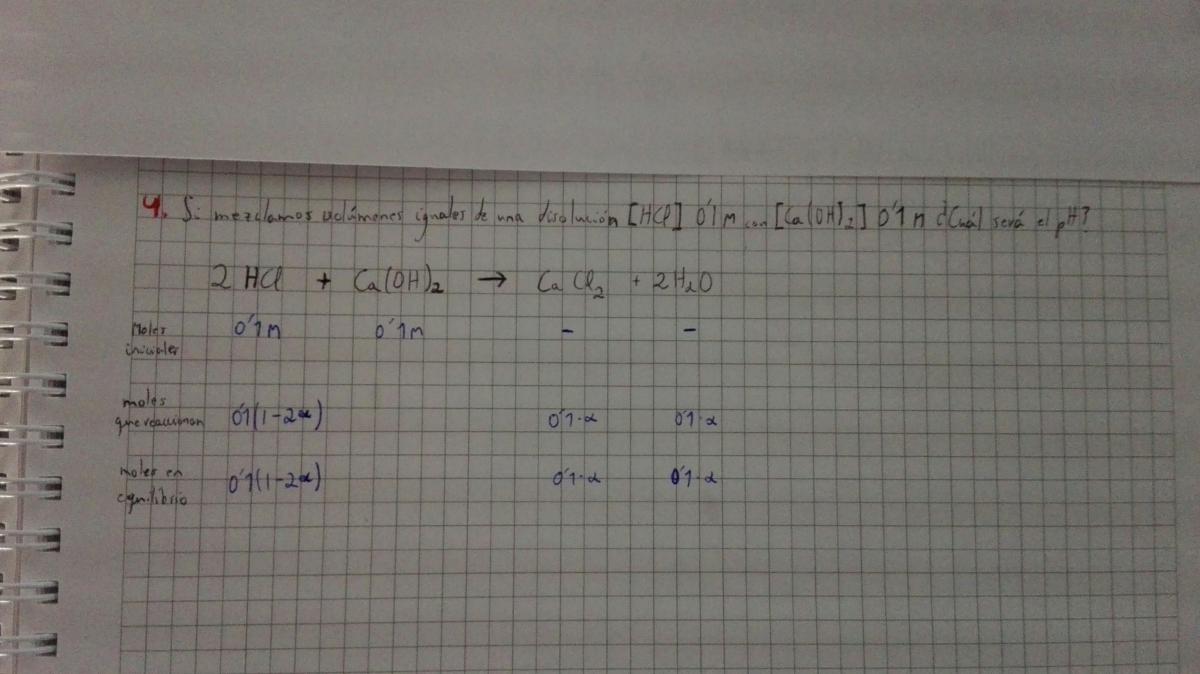 4. Si mezclamos volúmenes iguales de una disolución [HCl] 0'1 M con [Ca(OH)2] 0'1 M ¿Cuál será el pH?
2 HCl + Ca(OH)2 → CaCl2 + 2H2O
Moles iniciales 0'1 M 0'1 M – –
moles que reaccionan 0'1(1-2α) 0'1·α 0'1·α
moles en equilibrio 0'1(1-2α) 0'1·α 0'1·α